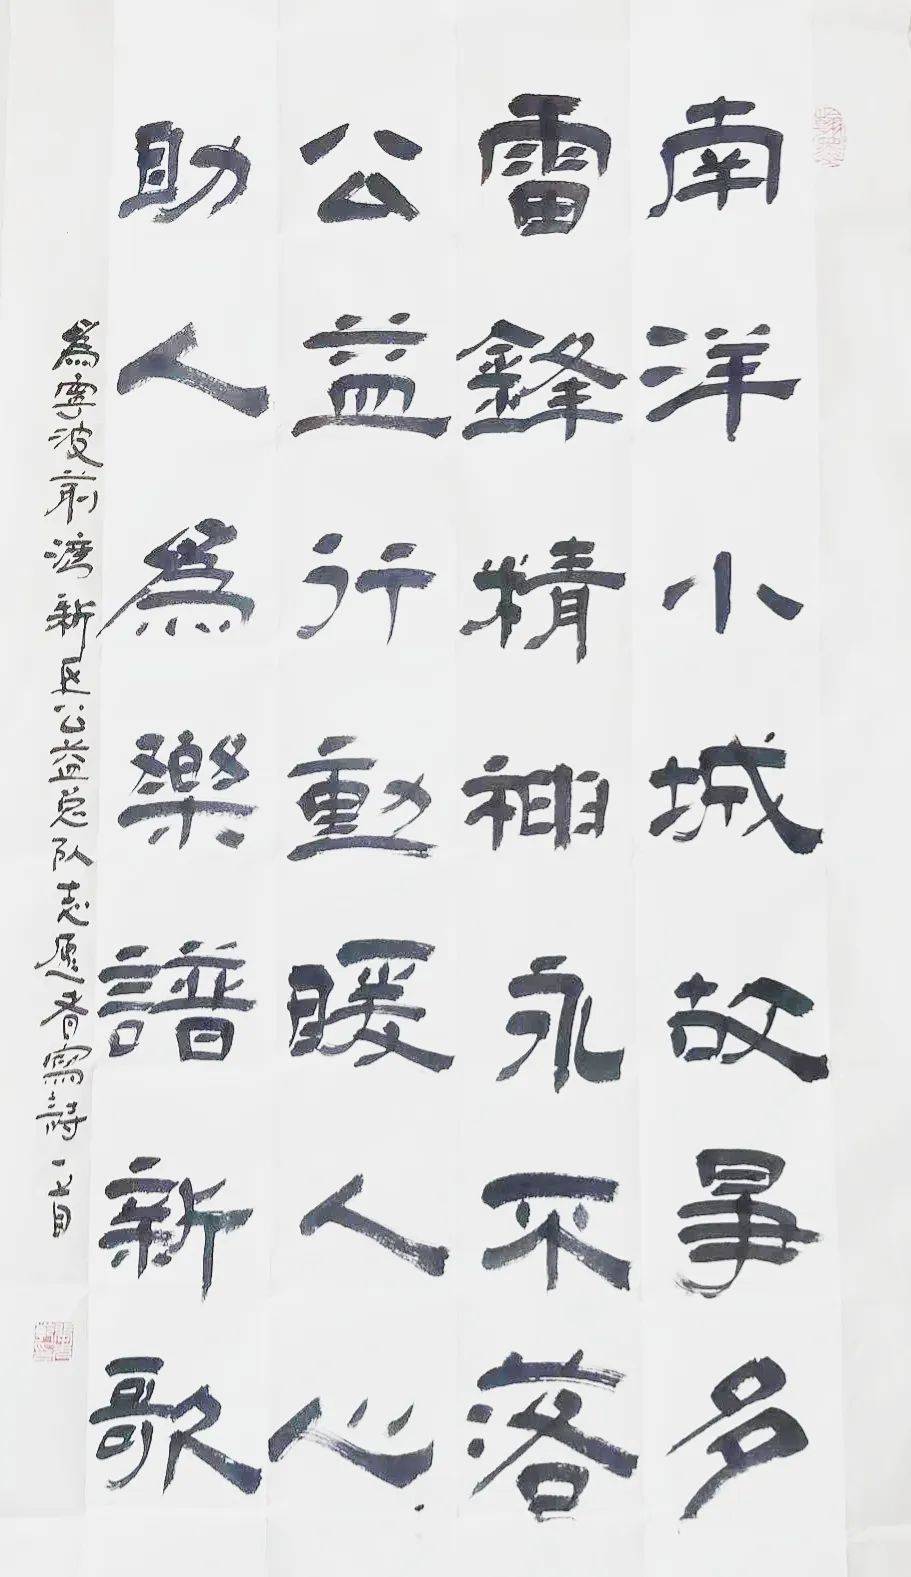 南洋小城故事多
雷鋒精神永不落
公益行動暖人心
助人為樂譜新歌
為寧波前湾新区公益总队志愿者寫詩一首